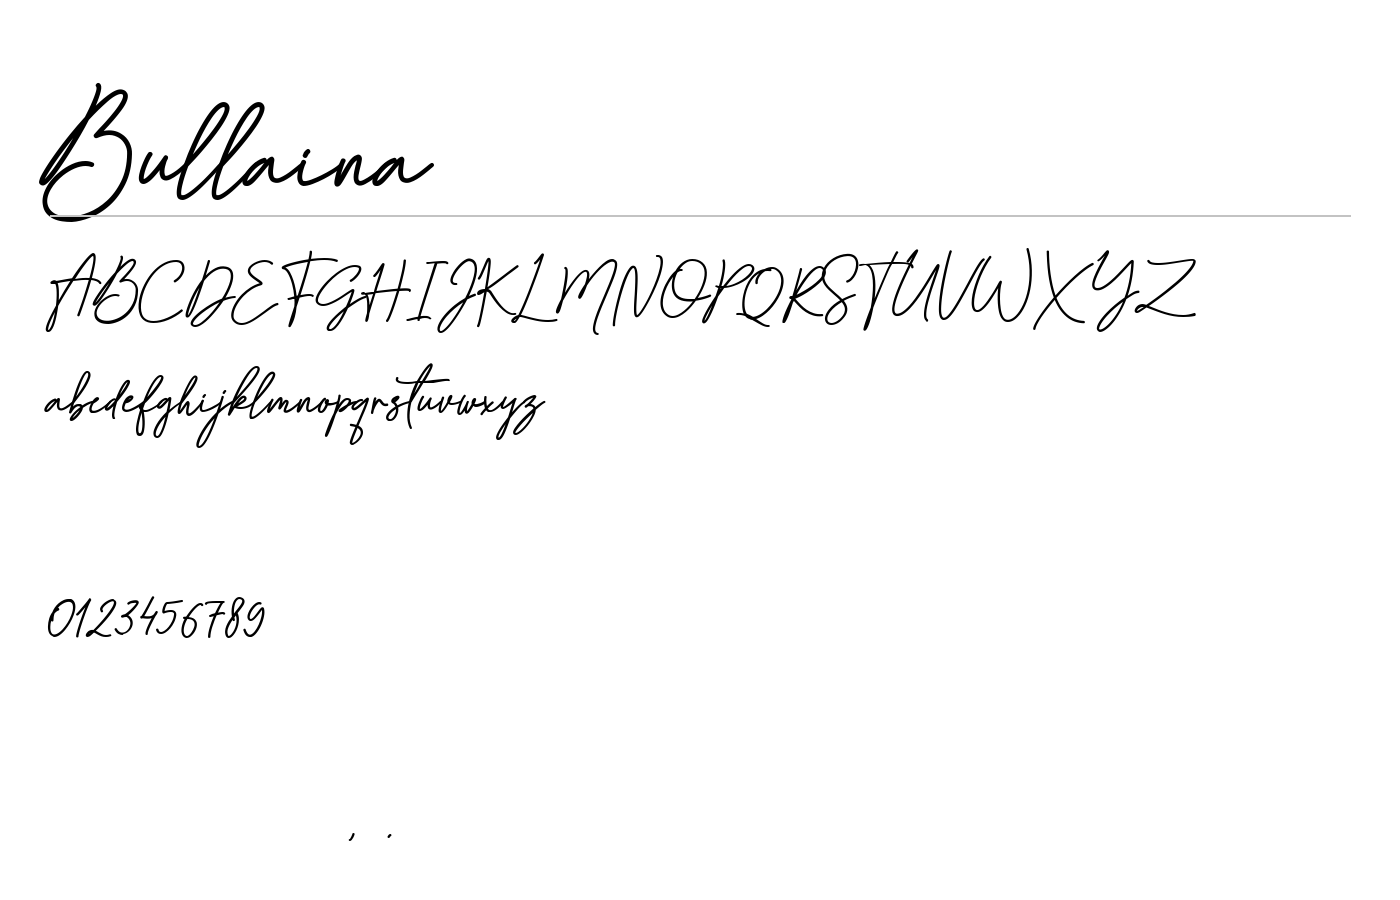 Bullaina
ABCDEFGHIJKLMNOPQRSTUVWXYZ
abcdefghijklmnopqrstuvwxyz
0123456789
, .